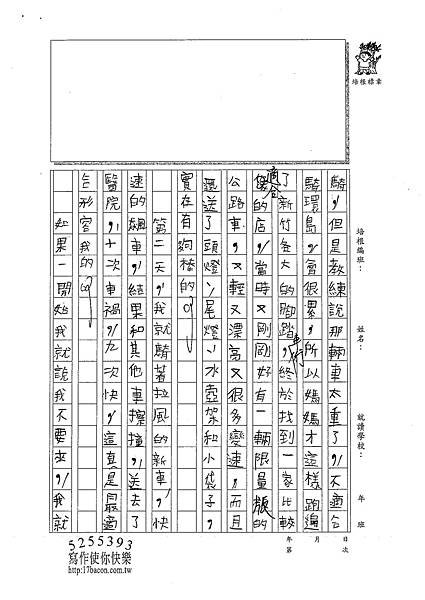 騎，但是教練說那輛車太重了，不適合
騎環島，會很累，所以媽媽才這樣跑遍
了新竹各大的腳踏車行，終於找到一家比較
適合的店，當時又剛好有一輛限量版的
公路車，又輕又漂亮又很多變速，而且
還送了頭燈、尾燈、水壺架和小袋子，
實在有夠棒的。
第二天，我就騎著拉風的新車，快
速的飆車，結果和其他車擦撞，送去了
醫院，十次車禍，九次快，這真是最適
合形容我的。
如果一開始我就說我不要去，我就
培根標章
培根編班：
姓名：
就讀學校：
年 班
年 月 日
第 次
5255393
寫作使你快樂
http://17bacon.com.tw